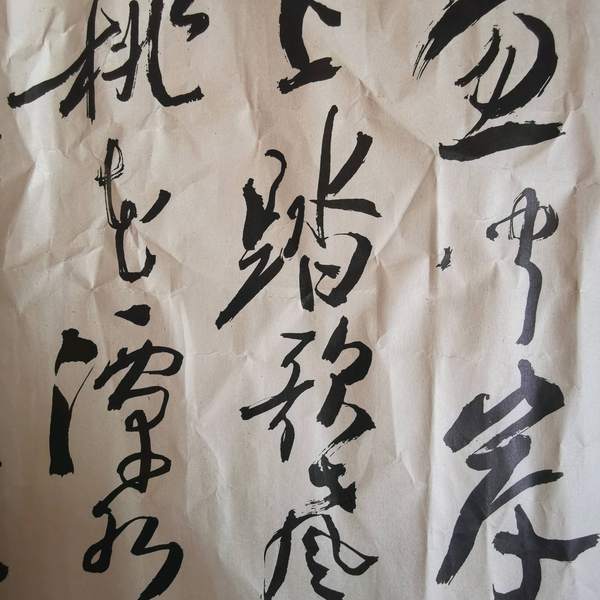 忽聞岸
上踏歌聲
桃花潭水